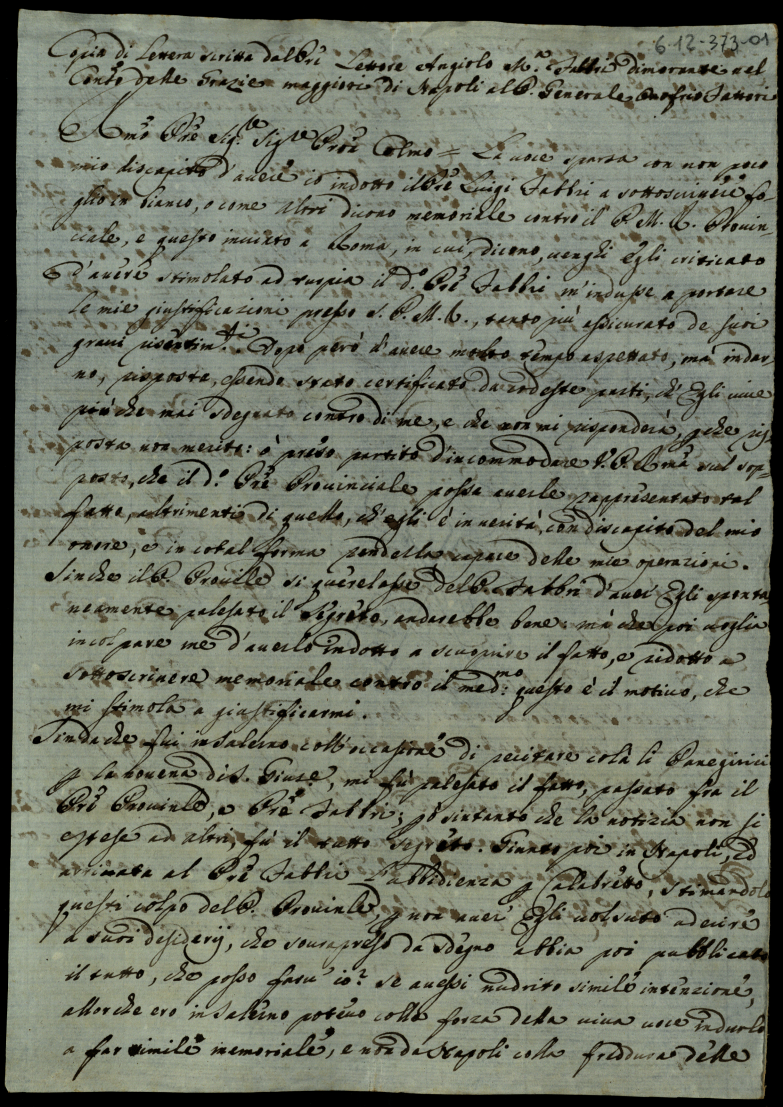 6-12-373-01
Copia di Lettera scritta dal Prẽ Lettore Angiolo M.ª Fabbri dimorante nel
Conṽto delle Grazie maggiori di Napoli al P. Generale Onofrio Fattori
Rmo Pre Sig.re Sig.re Prõe Colmo = La voce sparsa con non poco
mio discapito d'avere io indotto il Pre Luigi Fabbri a sottoscrivere fo-
glio in bianco, o come altri dicono memoriale contro il P. M. R. Provin-
ciale, e questo inviato a Roma, in cui, dicono, venghi Egli criticato
d'avere stimolato ad il d.º Pre Fabbri m'indusse a portare
le mie giustificazioni presso S. P. M. R., tanto più assicurato de suoi
gravi risentim.ti Dopo però d'avere molto tempo aspettato, ma indar-
no, risposta, essendo stato certificato da codeste parti, ch'Egli vive
più che mai sdegnato contro di me, e che non mi risponderà, pche ris-
posta non merito: ò preso partito d'incommodare V. P. Rma sul sop-
posto, che il d.º Pre Provinciale possa averle rappresentato tal
fatto, altrimenti di quello, ch'egli è in verità, con discapito del mio
onore, e in cotal forma renderla capace delle mie operazioni.
Sinche il P. Provile si querelasse del P. Fabbri d'aver Egli sponta-
neamente palesato il segreto, andarebbe bene: mà che poi voglia
incolpare me d'averlo indotto a scuoprire il fatto, e ridotto a
sottoscrivere memoriale contro il med.mo: questo è il motivo, che
mi stimola a giustificarmi.
Sin da che fui in Salerno coll'occasione di recitare colà li Panegirici
p la Novena di S. Giuse, mi fù palesato il fatto, passato fra il
Pre Provinle, e Pre Fabbri; pò sintanto che la notizia non si
estese ad altri, fù il tutto segreto. Giunto poi in Napoli, ed
intimata al Pre Fabbri l'ubbidienza p Calabretto, stimandolo
questi colpo del P. Provinle, p non aver Egli voluto aderire
a suoi desiderij, che sovrapreso da sdegno abbia poi pubblicato
il tutto, che posso farci io? Se avessi nudrito simile intenzione,
allorche ero in Salerno potevo colla forza della viva voce indurlo
a far simile memoriale, e non da Napoli colla freddura delle